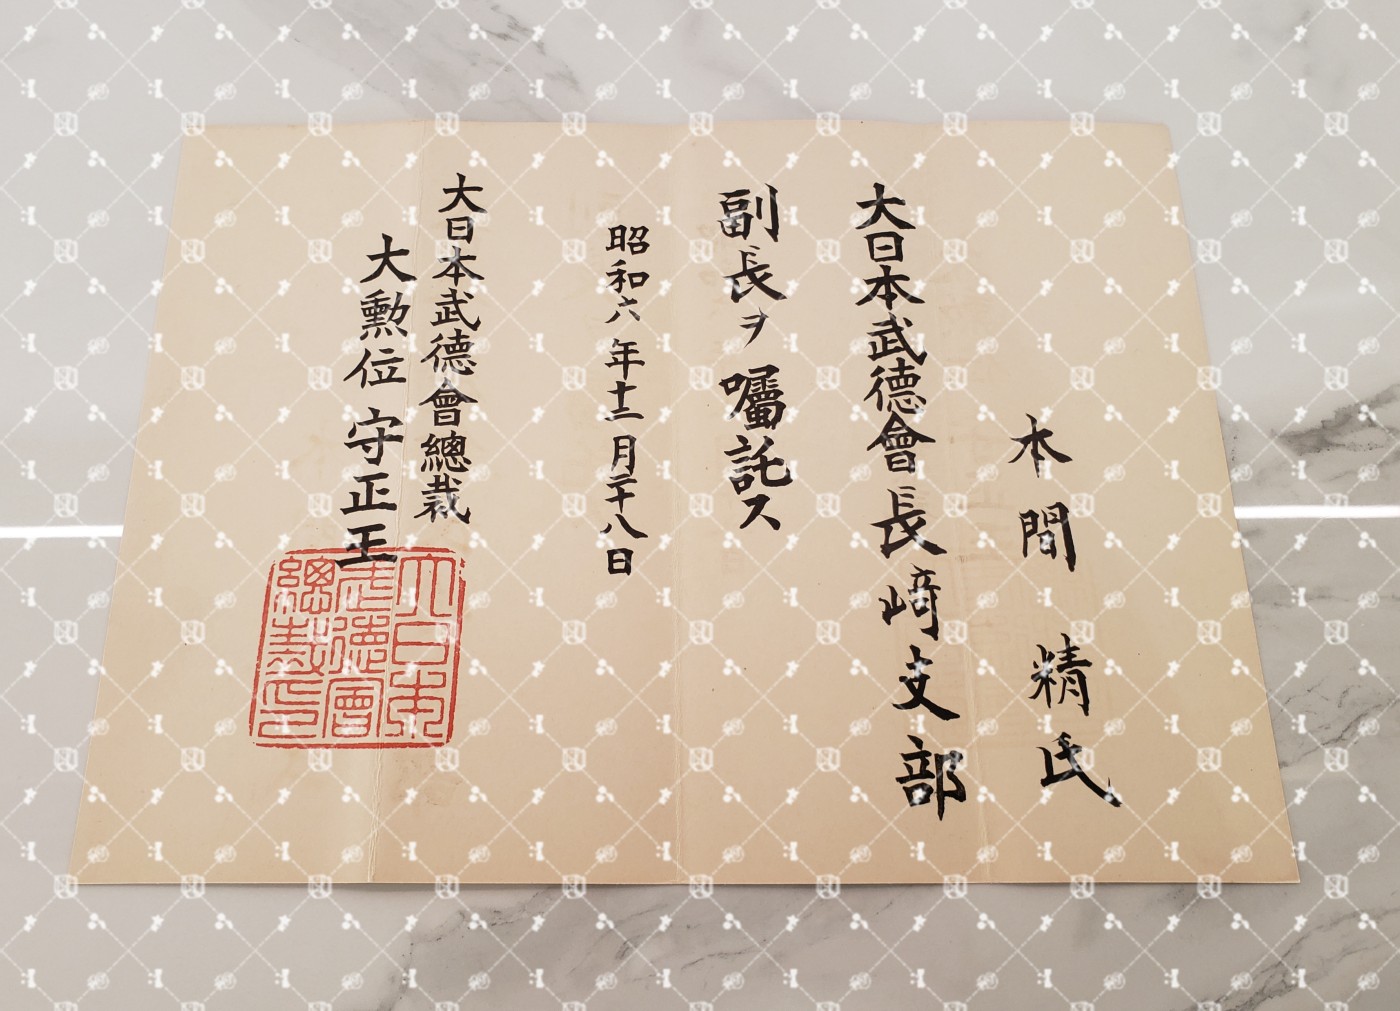 本間精氏
大日本武德會長﨑支部
副長ヲ囑託ス
昭和六年十二月二十八日
大日本武德會總裁
大勲位守正王
大日本
武德會
總裁印